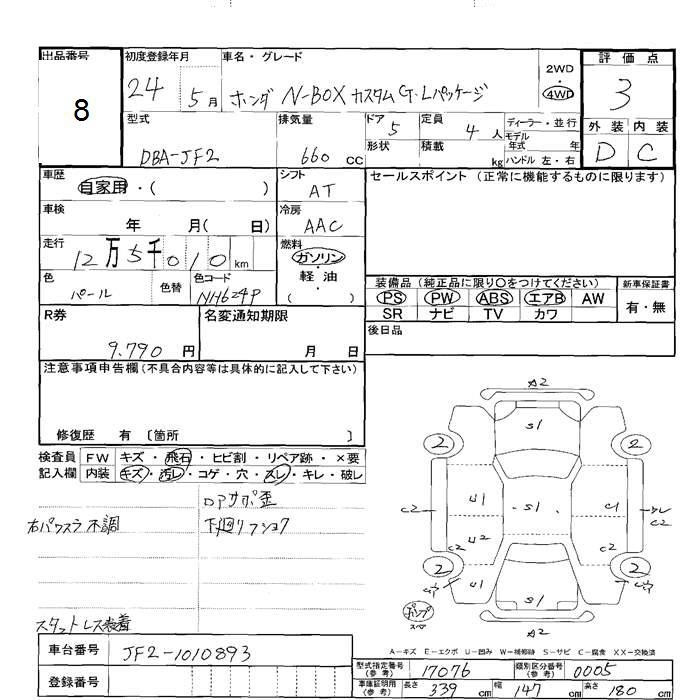 出品番号
8
初度登録年月
24 5月
車名・グレード
ホンダ N-BOX カスタムG・Lパッケージ
2WD
・
4WD
評価点
3
外装 内装
D C
型式
DBA-JF2
排気量
660 cc
ドア 5
形状
定員 4 人
積載 kg
ディーラー・並行
モデル
年式 年
ハンドル 左・右
車歴
自家用・( )
シフト
AT
セールスポイント (正常に機能するものに限ります)
車検
年 月( 日)
冷房
AAC
走行
12万5千010km
燃料
ガソリン
・
軽油
( )
色
パール
色替
色コード
NH624P
装備品 (純正品に限り○をつけてください)
PS PW ABS エアB AW
SR ナビ TV カワ
新車保証書
有・無
R券
9.790 円
名変通知期限
月 日
後日品
注意事項申告欄(不具合内容等は具体的に記入して下さい)
修復歴 有 〔箇所 〕
検査員
記入欄
FW キズ・飛石・ヒビ割・リペア跡・×要
内装 キズ・汚レ・コゲ・穴・スレ・キレ・破レ
ロアサポ歪
右パワスラ不調
下廻リフショク
スタットレス装着
A2
S1
2 2
U1
S1
C1
C2
スレ
C2
U2
C2
C2
2 2
U1
S1
A2
パンク
スペア
A-キズ E-エクボ U-凹み W-補修跡 S-サビ C-腐食 XX-交換済
車台番号
JF2-1010893
登録番号
型式指定番号
(参考)
17076
類別区分番号
(参考)
0005
車庫証明用
(参考)
長さ 339 cm
幅 147 cm
高さ 180 cm